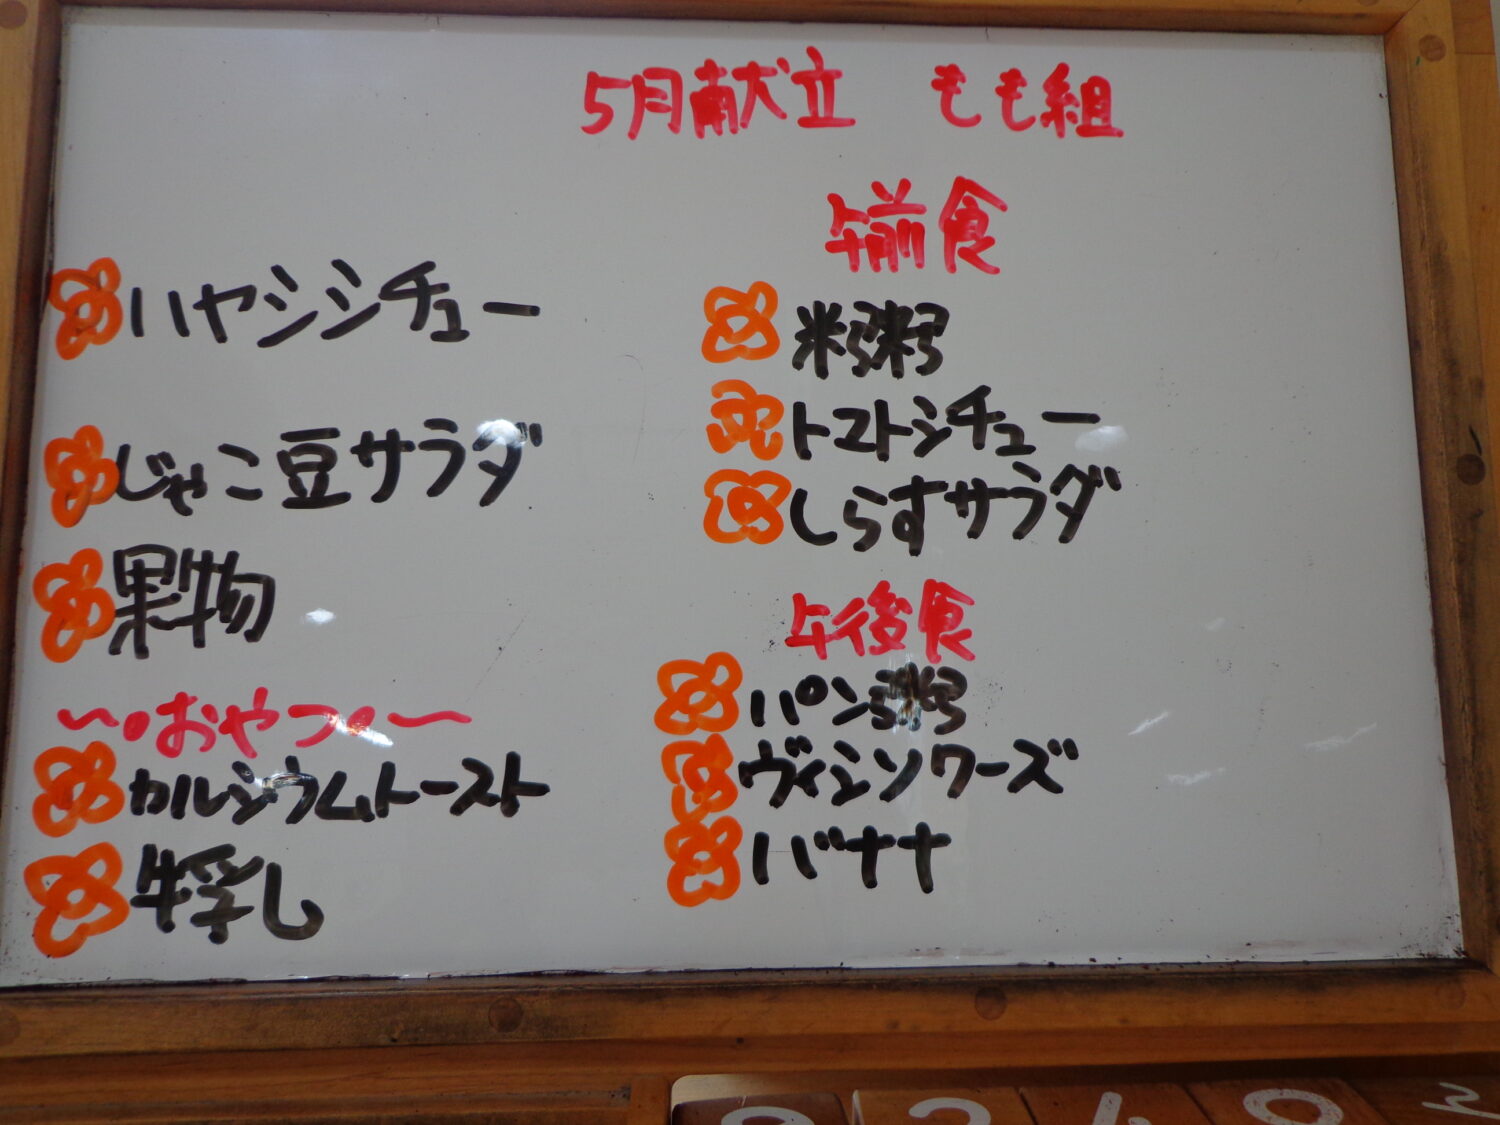 5月献立 もも組
ハヤシシチュー
じゃこ豆サラダ
果物
〜・おやつ・〜
カルシウムトースト
牛乳
午前食
米粥
トマトシチュー
しらすサラダ
午後食
パン粥
ヴィシソワーズ
バナナ